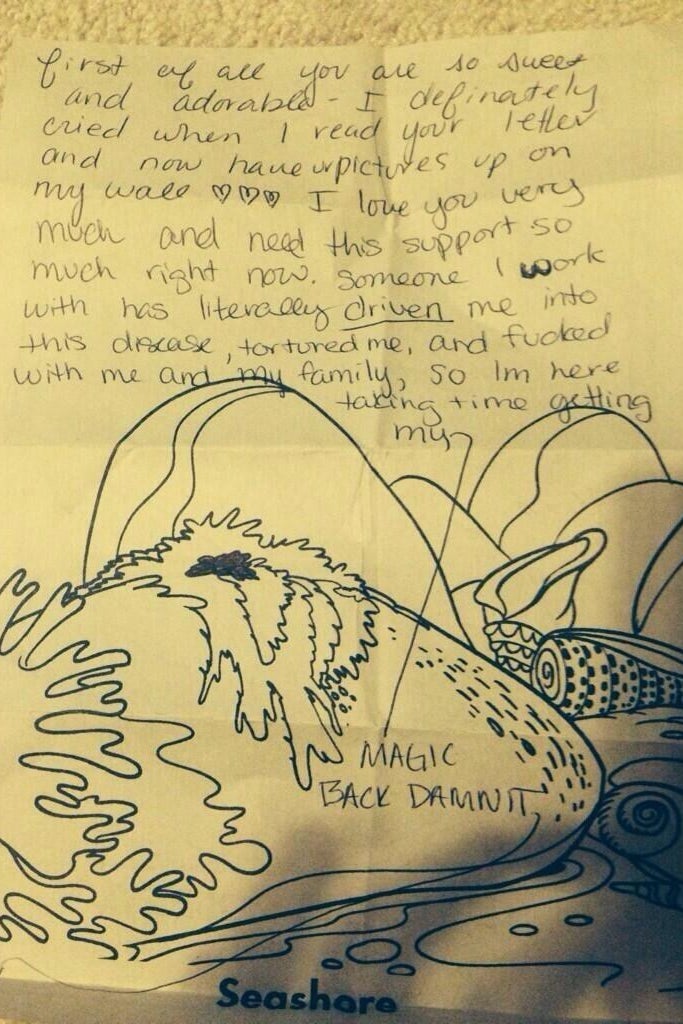 first of all you are so sweet
and adorable - I definately
cried when I read your letter
and now have ur pictures up on
my wall ♡♡♡ I love you very
much and need this support so
much right now. Someone I work
with has literally driven me into
this disease, tortured me, and fucked
with me and my family, so Im here
taking time getting
my
MAGIC
BACK DAMNIT
Seashore